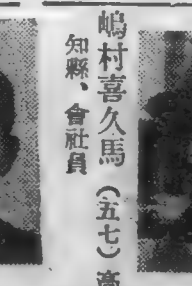 嶋村喜久馬（五七）高
知縣、會社員